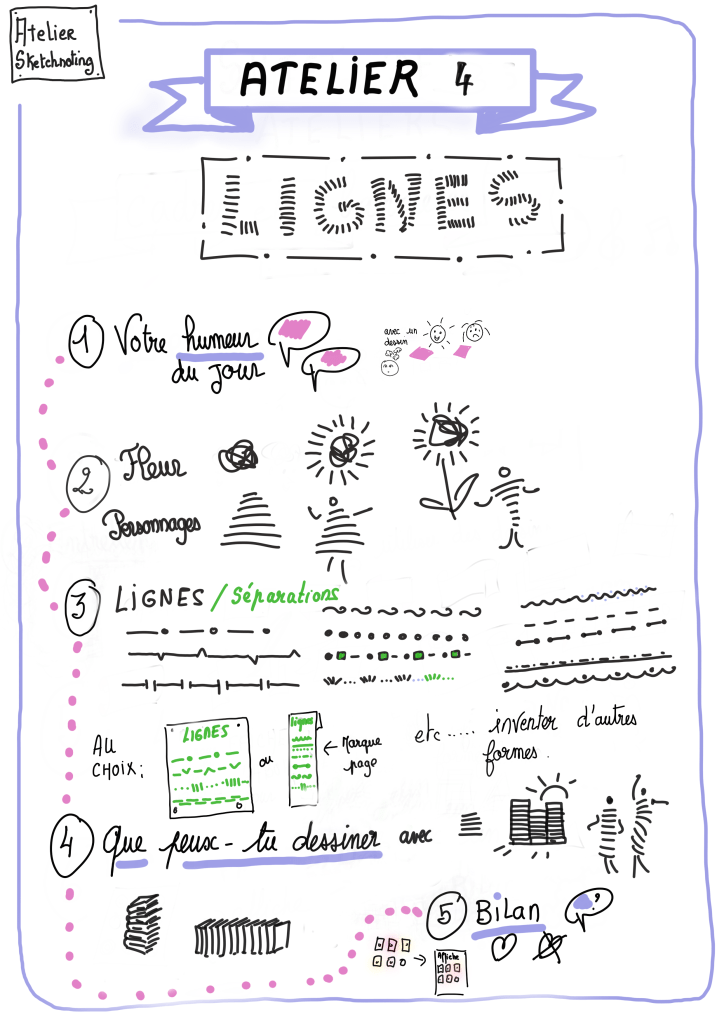 Atelier
Sketchnoting
ATELIER 4
LIGNES
1 Votre humeur
du jour
avec un
dessin
2 Fleur
Personnages
3 LIGNES / Séparations
AU
CHOIX:
LIGNES
ou
lignes
← Marque
page
etc..... inventer d'autres
formes.
4 Que peux-tu dessiner avec
5 Bilan
?
Affiche